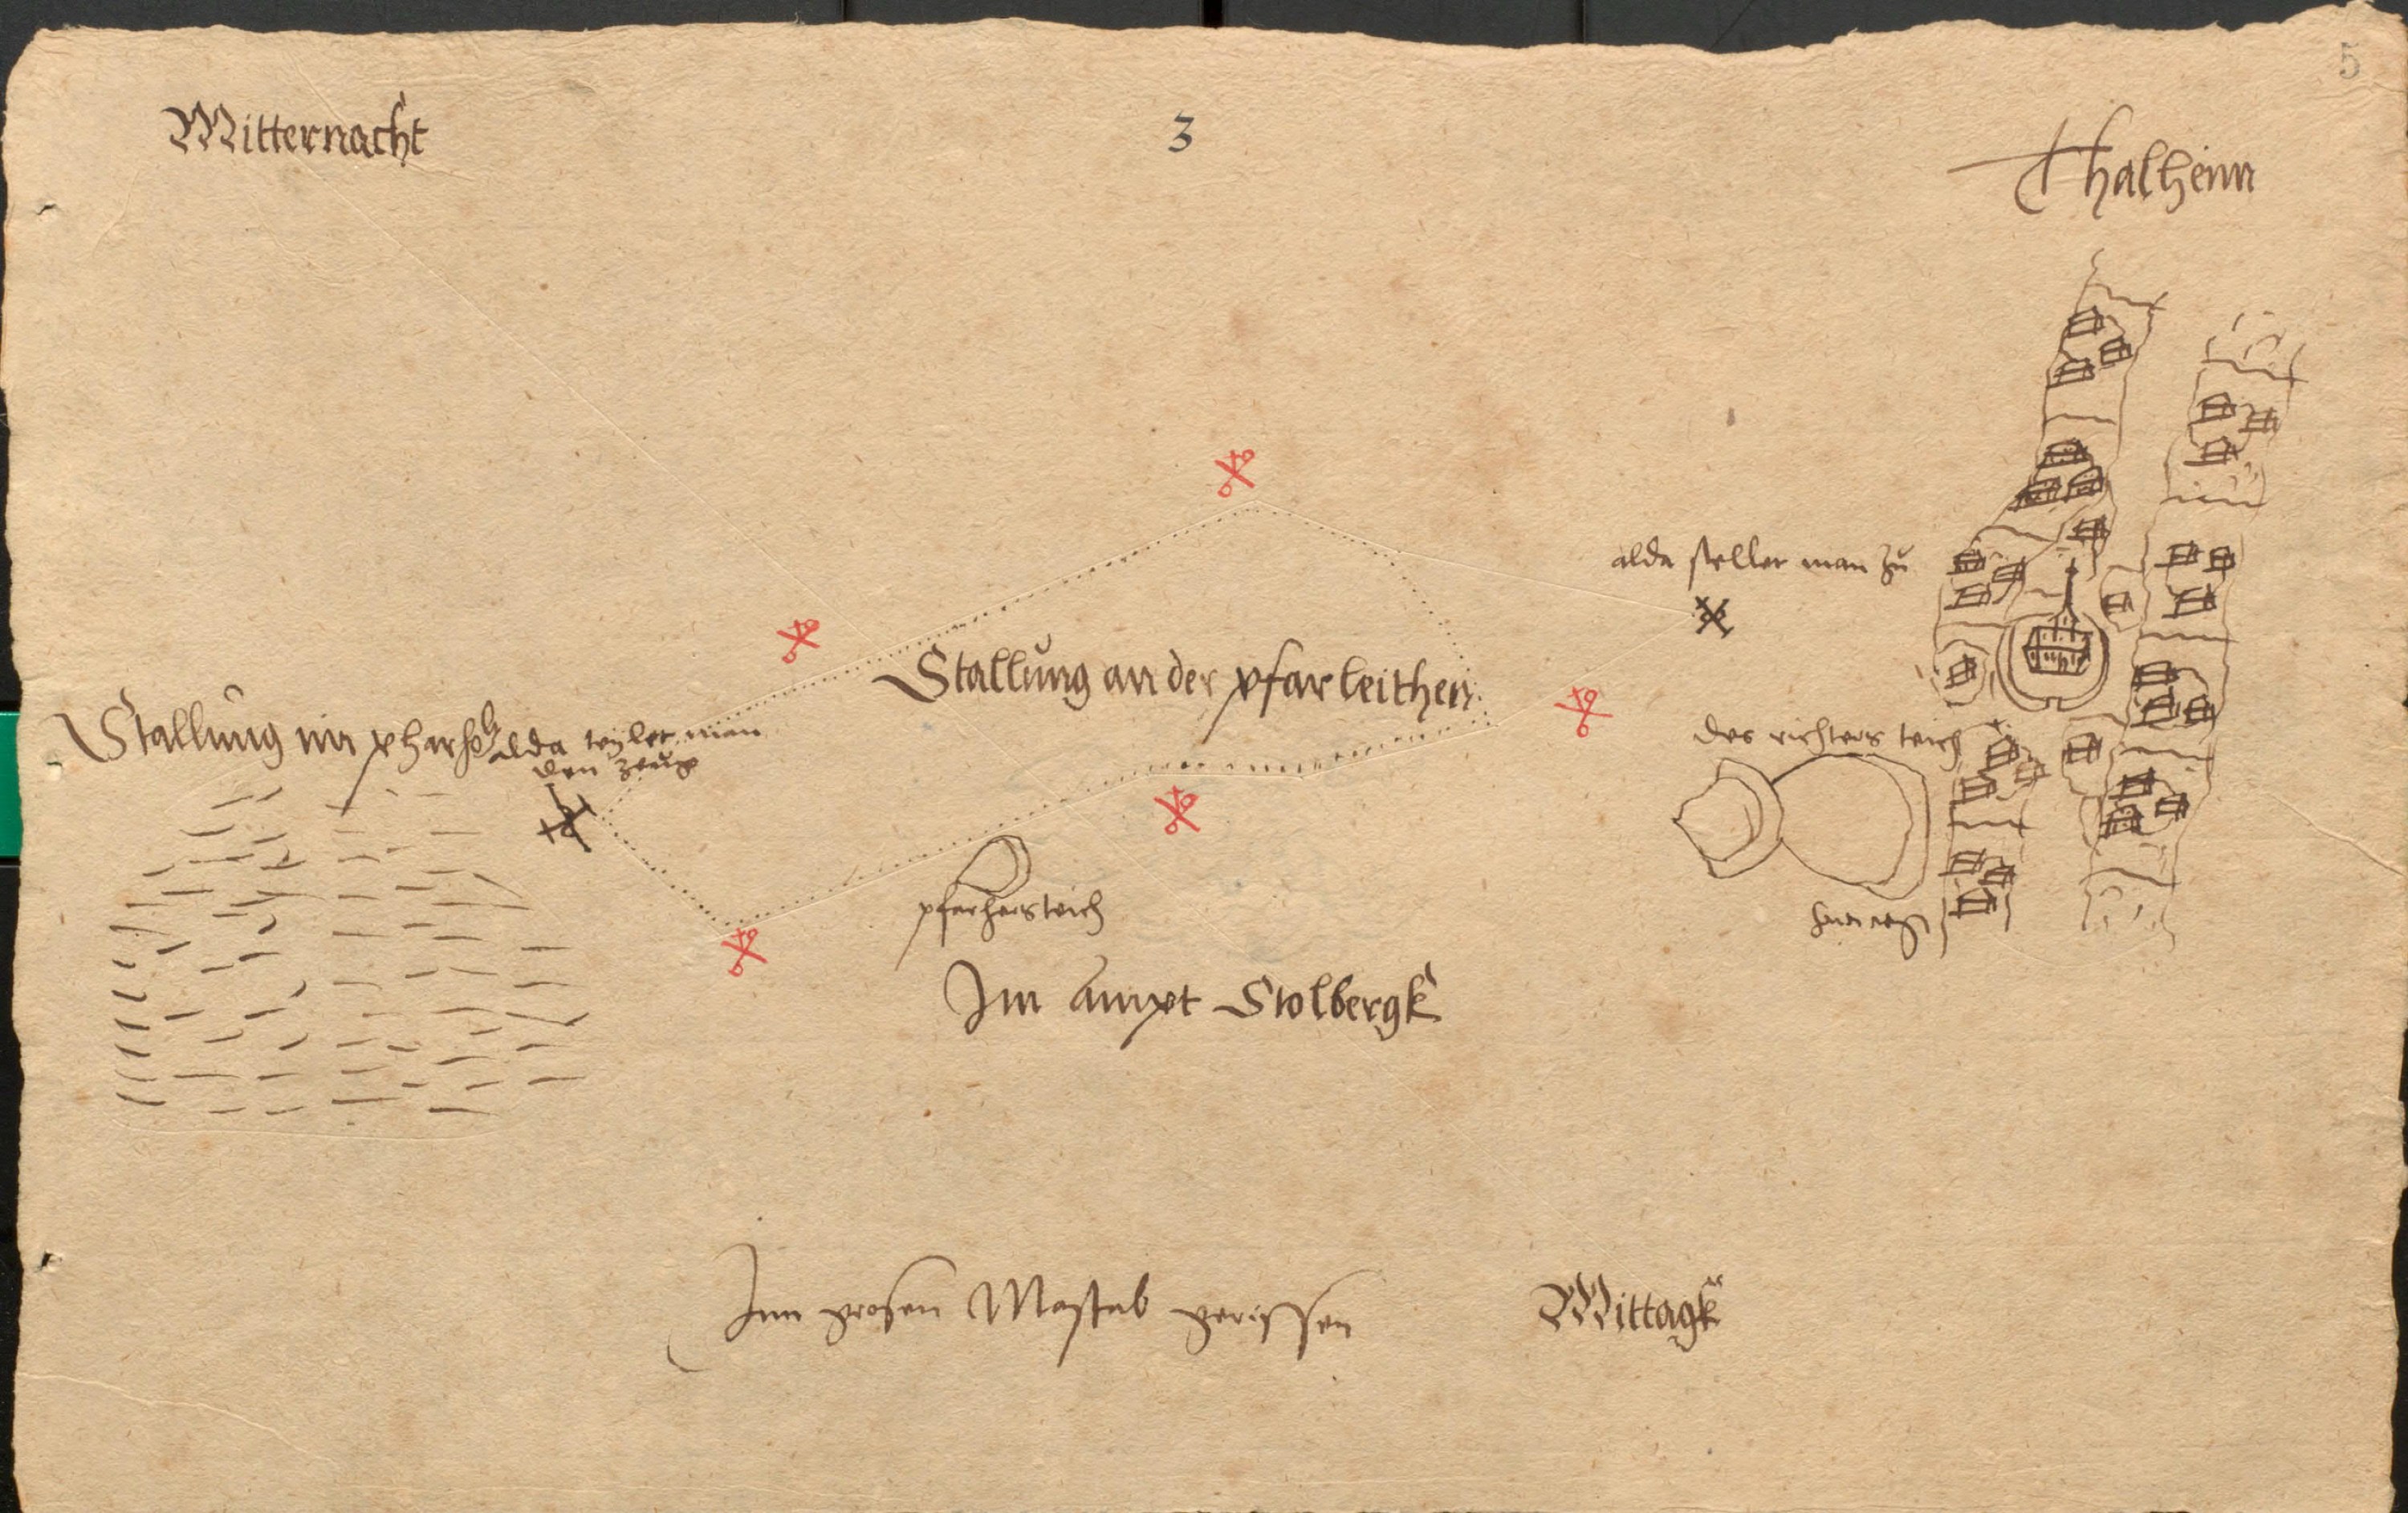 5
Mitternacht
3
Thalheim
alda stellet man zu
Stallung an der pfarleithen
Stallung im pharholtz
alda teylet man
den zeug
des richters teich
pfarhers teich
Im ampt Stolbergk
Inn grosen Mastab gerissen
Mittagk